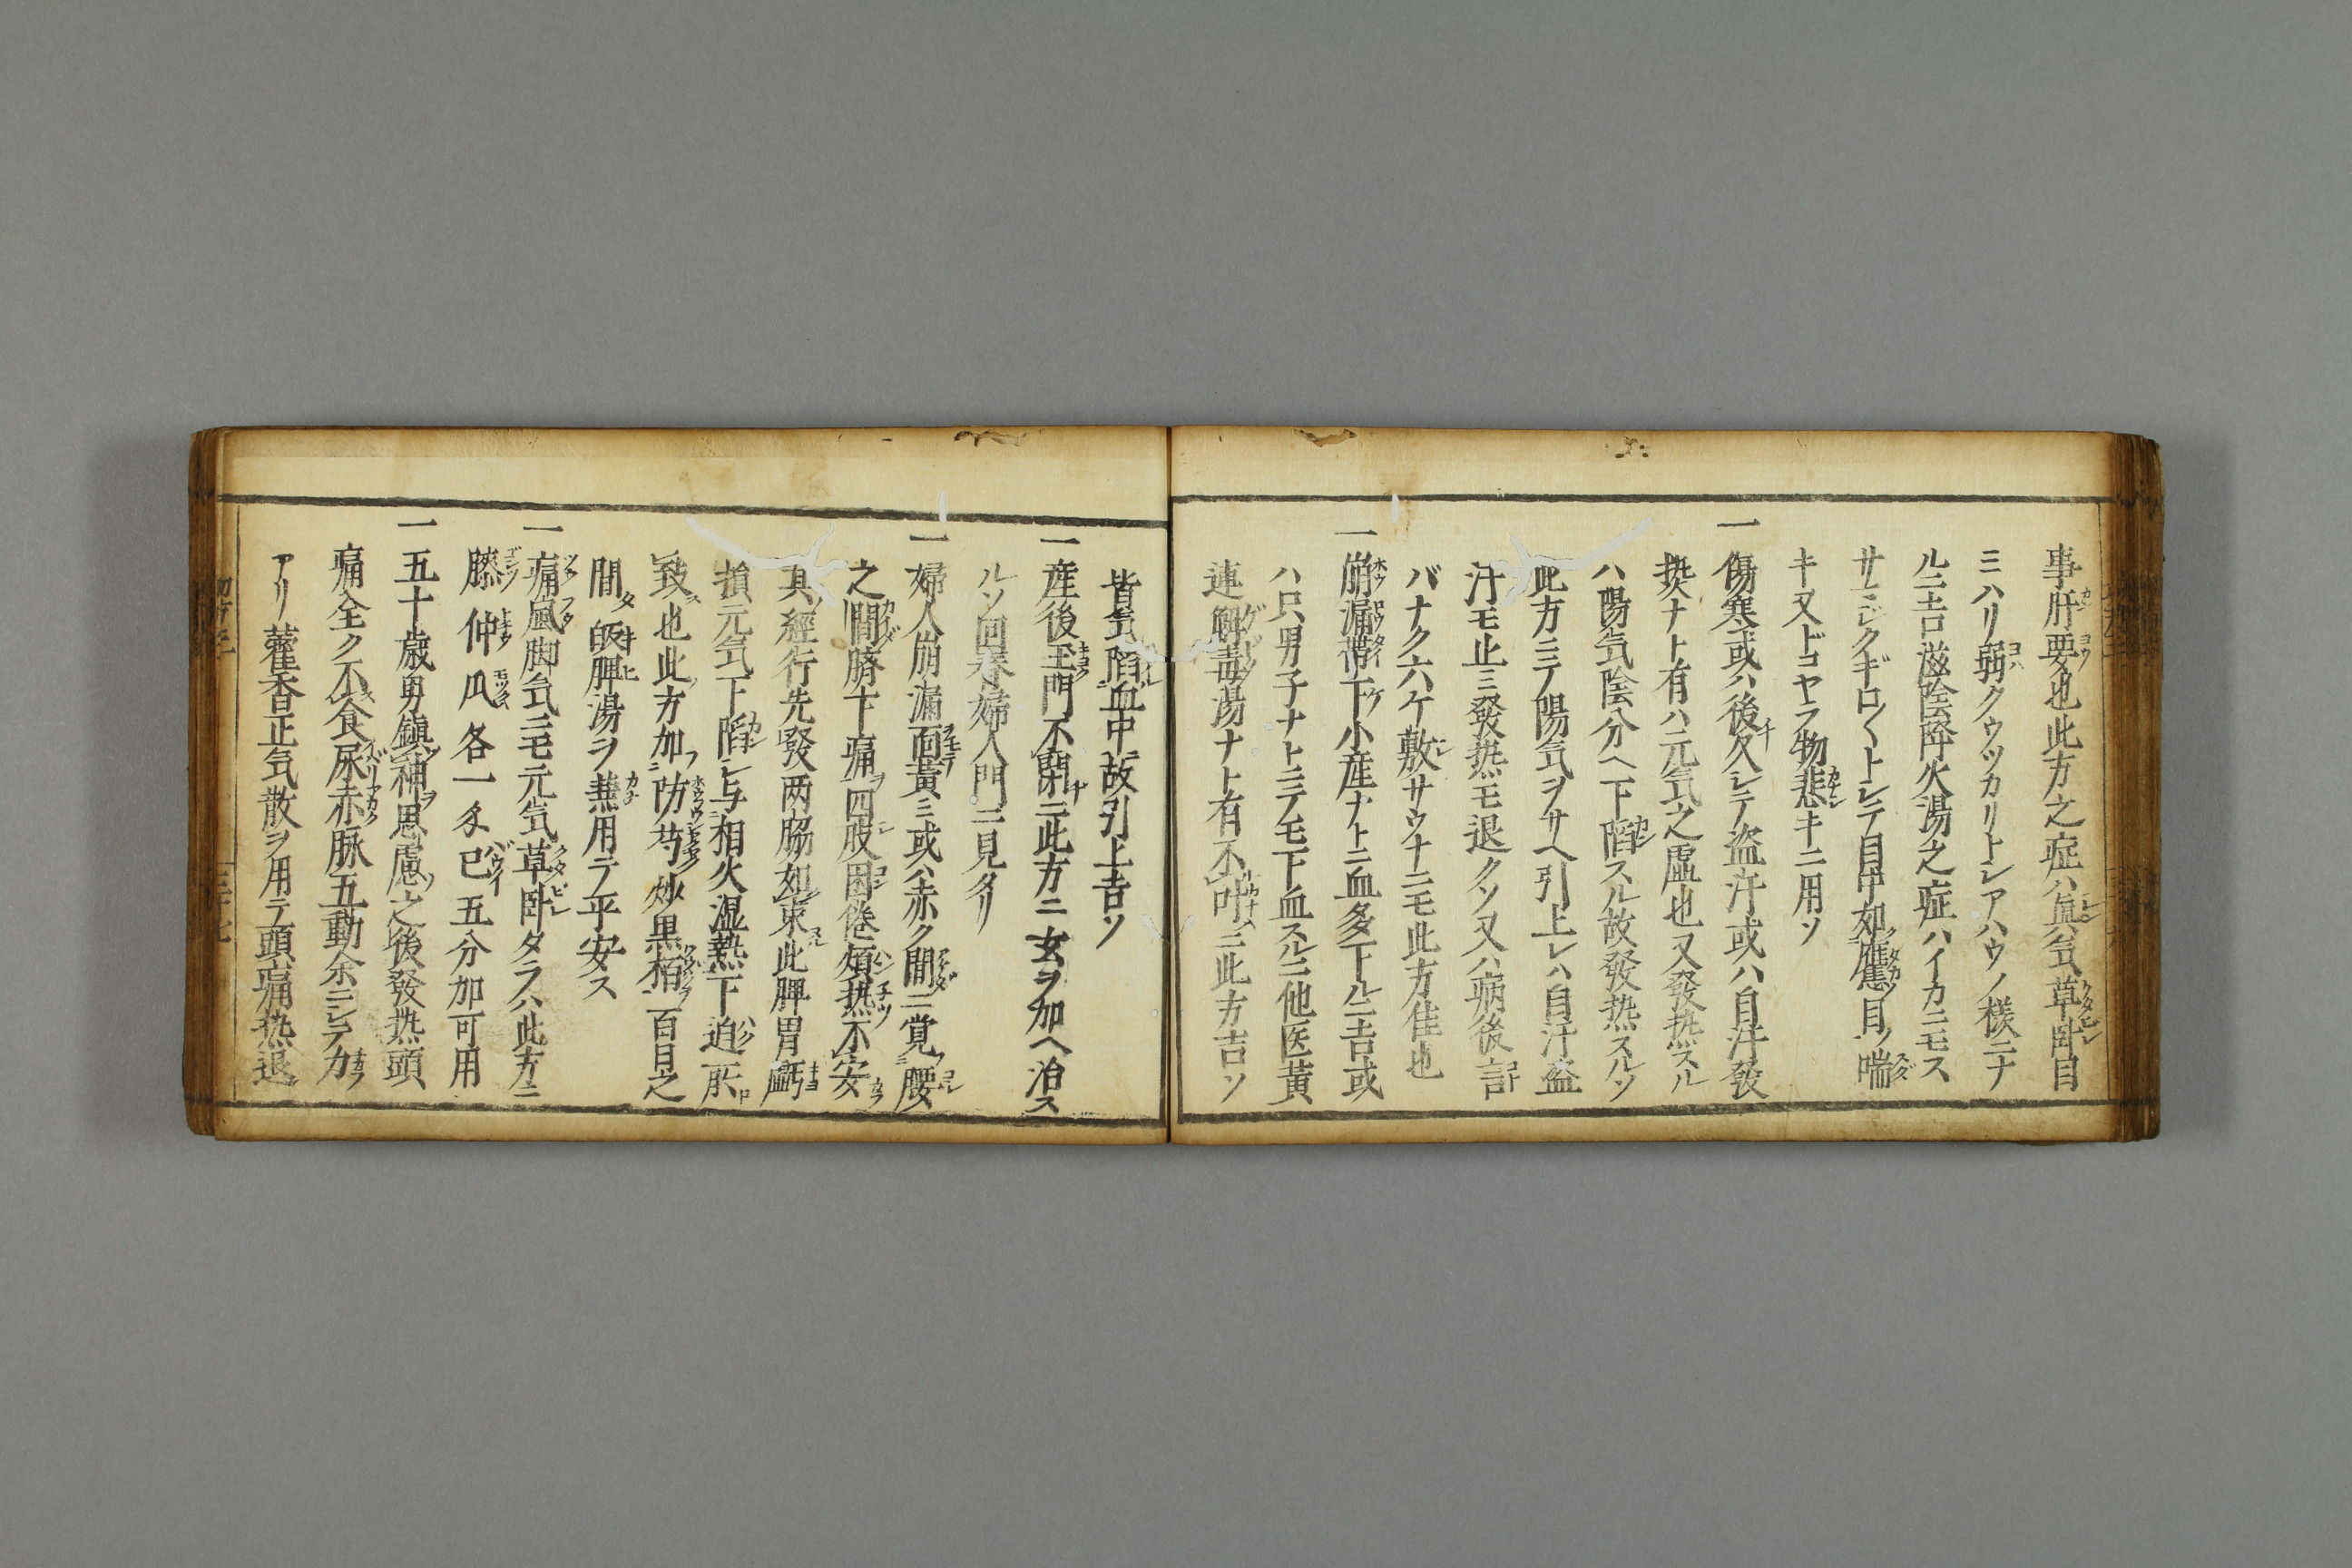 事肝要也此方之症ハ無気草臥目
ミハリ弱クウツカリトシアハウノ様ニナ
ルニ吉滋陰降火湯之症ハイカニモス
サミジクギロ〱トシテ目中如鷹ノ目ノ喘
キ又ドコヤラ物悲キニ用ソ
一傷寒或ハ後久シテ盗汗或ハ自汗發
熱ナト有ハ元気之虚也又發热スル
ハ陽気陰分ヘ下陷スル故發热スルソ
此方ニテ陽気ヲサヘ引上レハ自汗盗
汗モ止ミ發热モ退クソ又ハ病後言
バナク六ケ敷サウナニモ此方佳也
一崩漏帯下小産ナトニ血多下ルニ吉或
ハ只男子ナトニテモ下血スルニ他医黄
連解毒湯ナト有不叶ニ此方吉ソ
皆気陷血中故引上吉ソ
一産後玉門不閉ニ此方ニ玄ヲ加ヘ治ス
ルソ回春婦人門ニ見タリ
一婦人崩漏面黄ミ或ハ赤ク間ニ覚腰
之間臍下痛ヲ四肢困倦煩热不安
其經行先發两脇如束此脾胃虧
損元気下陷シ与相火湿熱下迫所
致也此方加防芍炒黒栢一百目之
間皈脾湯ヲ兼用テ平安ス
一痛風脚気ニモ元気草臥タラハ此方ニ
膝仲瓜各一匁巳五分加可用
一五十歳男鎮神思慮之後發热頭
痛全ク不食尿赤脉五動余ニシテ力
アリ藿香正気散ヲ用テ頭痛热退